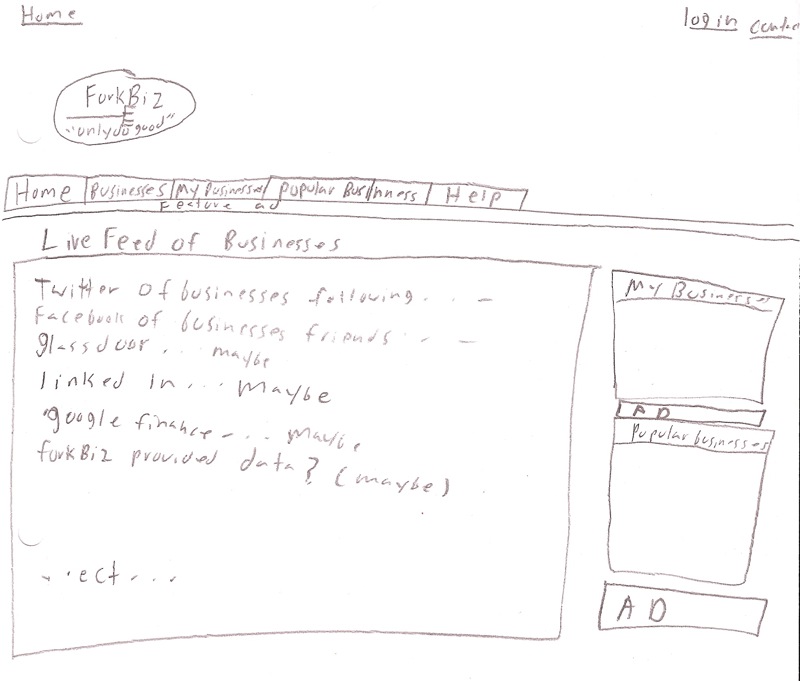 Home
log in
contac
ForkBiz
"only do good"
Home
Businesses
My Businesses
Popular Businness
Help
Feature ad
Live Feed of Businesses
Twitter of businesses following... -
Facebook of businesses friends... -
glassdoor... maybe
linked In... Maybe
google finance-... Maybe
forkBiz provided data? (maybe)
...ect...
My Businesses
AD
Popular businesses
AD